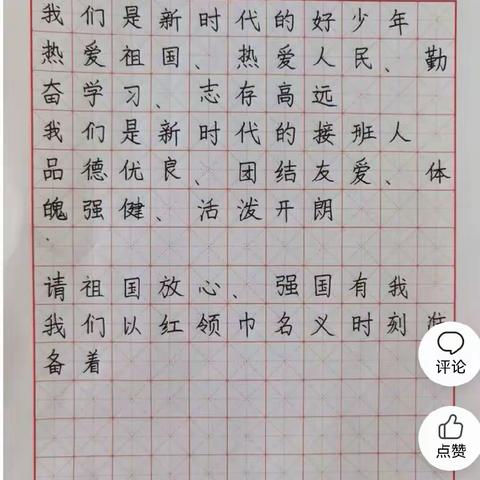 我们是新时代的好少年
热爱祖国、热爱人民、勤
奋学习、志存高远
我们是新时代的接班人
品德优良、团结友爱、体
魄强健、活泼开朗
请祖国放心、强国有我
我们以红领巾名义时刻准
备着
评论
点赞